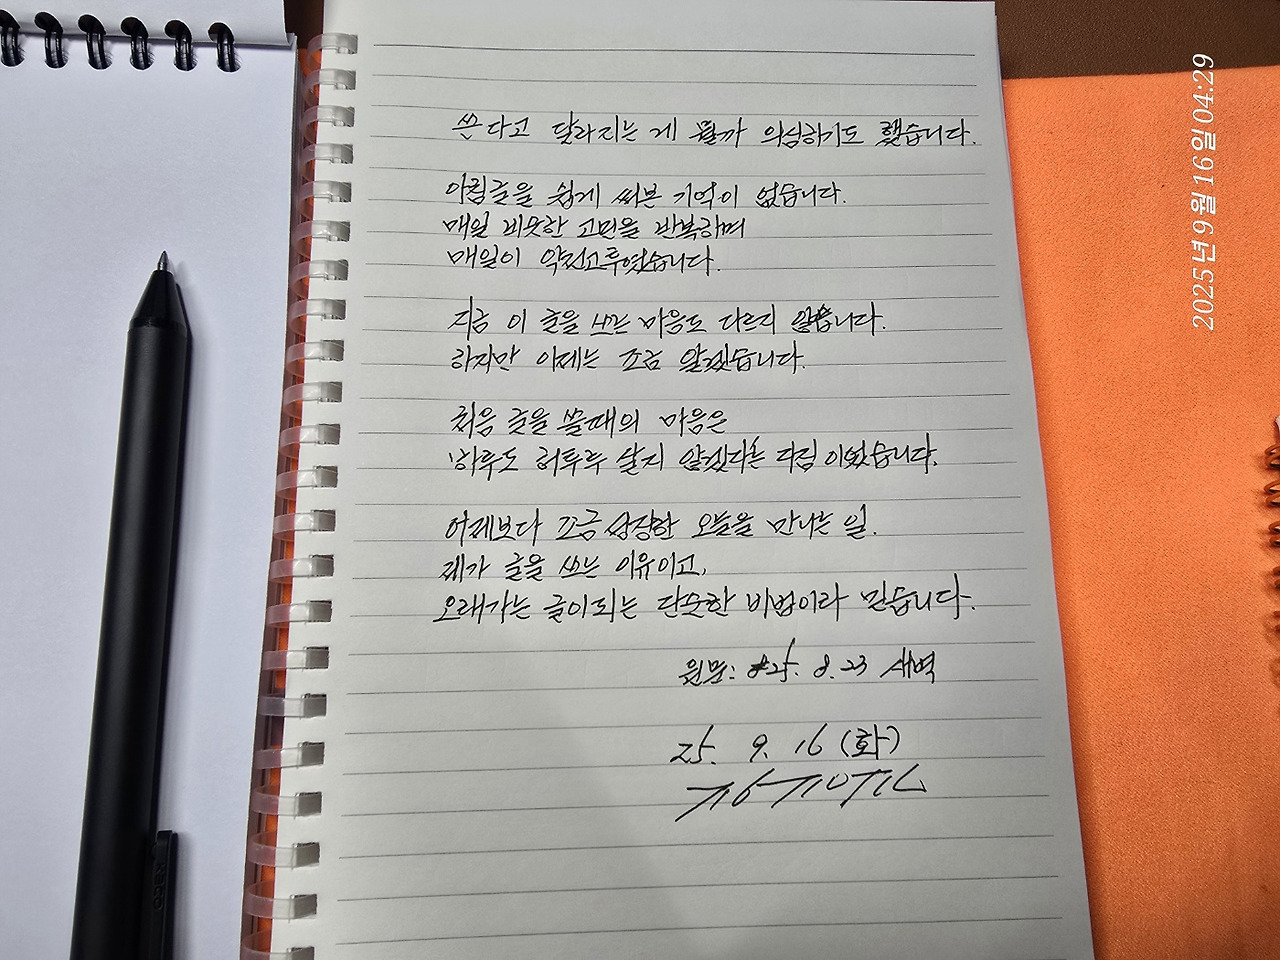 쓴다고 달라지는 게 뭘까 의심하기도 했습니다.
아침글을 쉽게 써본 기억이 없습니다.
매일 비슷한 고민을 반복하며
매일이 악전고투였습니다.
지금 이 글을 쓰는 마음도 다르지 않습니다.
하지만 이제는 조금 알겠습니다.
처음 글을 쓸때의 마음은
하루도 허투루 살지 않겠다는 다짐이었습니다.
어제보다 조금 성장한 오늘을 만나는 일.
제가 글을 쓰는 이유이고,
오래가는 글이되는 단순한 비법이라 믿습니다.
원문: 25. 8. 23 새벽
25. 9. 16 (화)
2025년 9월 16일 04:29